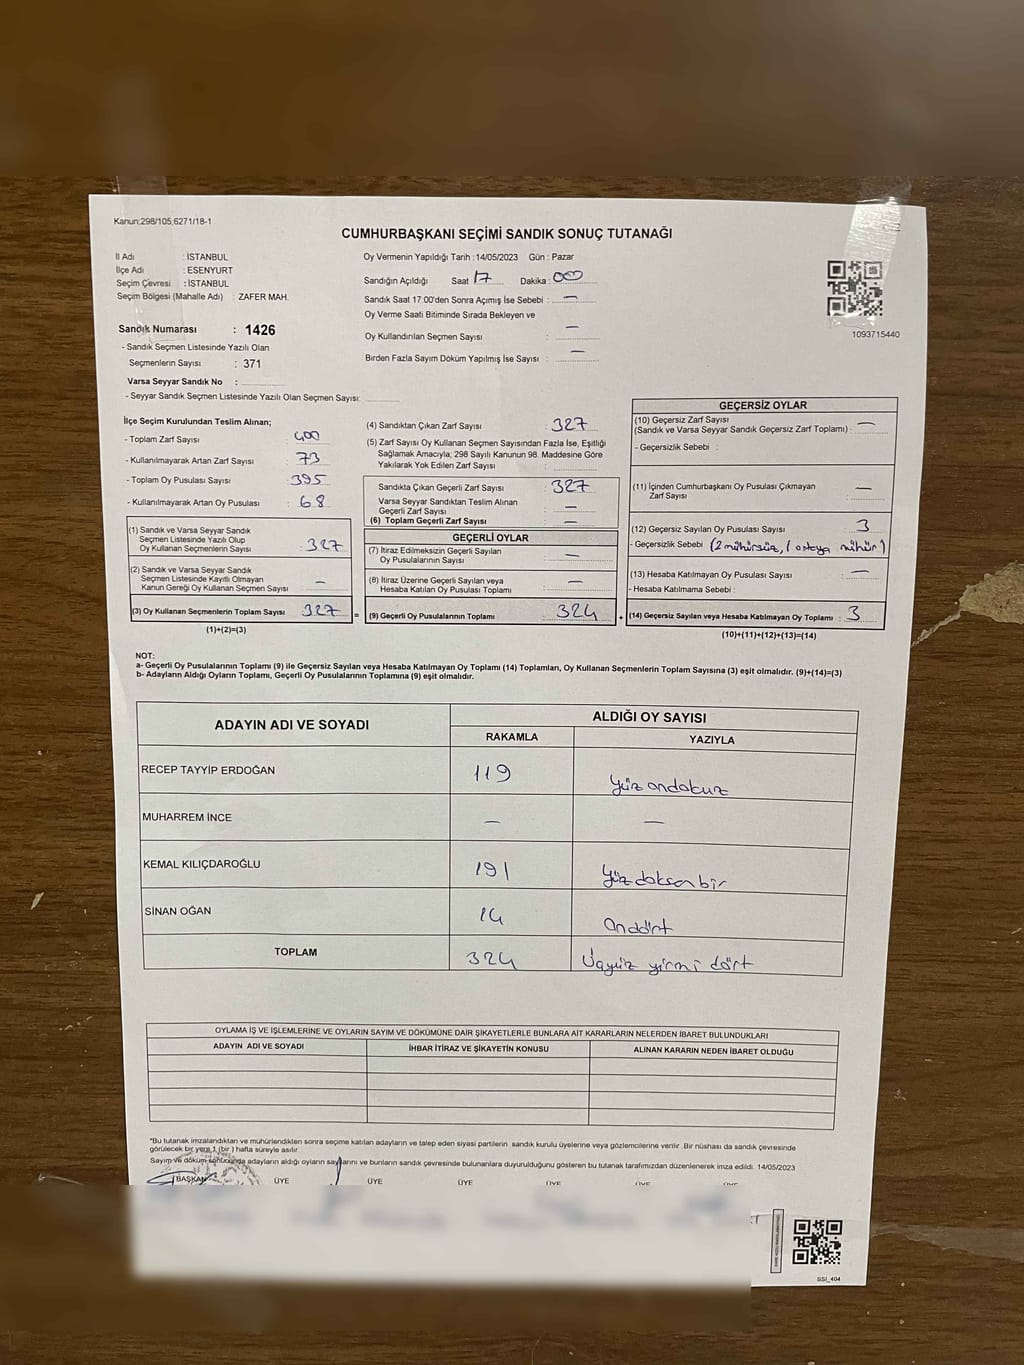 Kanun:298/105,6271/18-1
CUMHURBAŞKANI SEÇİMİ SANDIK SONUÇ TUTANAĞI
İl Adı : İSTANBUL
İlçe Adı : ESENYURT
Seçim Çevresi : İSTANBUL
Seçim Bölgesi (Mahalle Adı) : ZAFER MAH.
Sandık Numarası : 1426
- Sandık Seçmen Listesinde Yazılı Olan
Seçmenlerin Sayısı : 371
Varsa Seyyar Sandık No :
- Seyyar Sandık Seçmen Listesinde Yazılı Olan Seçmen Sayısı:
Oy Vermenin Yapıldığı Tarih : 14/05/2023 Gün : Pazar
Sandığın Açıldığı Saat 17 Dakika : 00
Sandık Saat 17:00'den Sonra Açımış İse Sebebi : —
Oy Verme Saati Bitiminde Sırada Bekleyen ve
Oy Kullandırılan Seçmen Sayısı : —
Birden Fazla Sayım Döküm Yapılmış İse Sayısı : —
1093715440
İlçe Seçim Kurulundan Teslim Alınan;
- Toplam Zarf Sayısı : 400
- Kullanılmayarak Artan Zarf Sayısı : 73
- Toplam Oy Pusulası Sayısı : 395
- Kullanılmayarak Artan Oy Pusulası : 68
(1) Sandık ve Varsa Seyyar Sandık
Seçmen Listesinde Yazılı Olup
Oy Kullanan Seçmenlerin Sayısı : 327
(2) Sandık ve Varsa Seyyar Sandık
Seçmen Listesinde Kayıtlı Olmayan
Kanun Gereği Oy Kullanan Seçmen Sayısı : —
(3) Oy Kullanan Seçmenlerin Toplam Sayısı : 327 =
(1)+(2)=(3)
(4) Sandıktan Çıkan Zarf Sayısı : 327
(5) Zarf Sayısı Oy Kullanan Seçmen Sayısından Fazla İse, Eşitliği
Sağlamak Amacıyla; 298 Sayılı Kanunun 98. Maddesine Göre
Yakılarak Yok Edilen Zarf Sayısı :
Sandıkta Çıkan Geçerli Zarf Sayısı : 327
Varsa Seyyar Sandıktan Teslim Alınan
Geçerli Zarf Sayısı : —
(6) Toplam Geçerli Zarf Sayısı : —
GEÇERLİ OYLAR
(7) İtiraz Edilmeksizin Geçerli Sayılan
Oy Pusulalarının Sayısı : —
(8) İtiraz Üzerine Geçerli Sayılan veya
Hesaba Katılan Oy Pusulası Toplamı : —
(9) Geçerli Oy Pusulalarının Toplamı : 324 +
GEÇERSİZ OYLAR
(10) Geçersiz Zarf Sayısı
(Sandık ve Varsa Seyyar Sandık Geçersiz Zarf Toplamı) : —
- Geçersizlik Sebebi :
(11) İçinden Cumhurbaşkanı Oy Pusulası Çıkmayan
Zarf Sayısı : —
(12) Geçersiz Sayılan Oy Pusulası Sayısı : 3
- Geçersizlik Sebebi (2 mühürsüz, 1 ortaya mühür)
(13) Hesaba Katılmayan Oy Pusulası Sayısı : —
- Hesaba Katılmama Sebebi :
(14) Geçersiz Sayılan veya Hesaba Katılmayan Oy Toplamı : 3
(10)+(11)+(12)+(13)=(14)
NOT:
a- Geçerli Oy Pusulalarının Toplamı (9) ile Geçersiz Sayılan veya Hesaba Katılmayan Oy Toplamı (14) Toplamları, Oy Kullanan Seçmenlerin Toplam Sayısına (3) eşit olmalıdır. (9)+(14)=(3)
b- Adayların Aldığı Oyların Toplamı, Geçerli Oy Pusulalarının Toplamına (9) eşit olmalıdır.
ADAYIN ADI VE SOYADI ALDIĞI OY SAYISI
RAKAMLA YAZIYLA
RECEP TAYYİP ERDOĞAN 119 Yüz ondokuz
MUHARREM İNCE — —
KEMAL KILIÇDAROĞLU 191 Yüz doksan bir
SİNAN OĞAN 14 Ondört
TOPLAM 324 Üçyüz yirmi dört
OYLAMA İŞ VE İŞLEMLERİNE VE OYLARIN SAYIM VE DÖKÜMÜNE DAİR ŞİKAYETLERLE BUNLARA AİT KARARLARIN NELERDEN İBARET BULUNDUKLARI
ADAYIN ADI VE SOYADI İHBAR İTİRAZ VE ŞİKAYETİN KONUSU ALINAN KARARIN NEDEN İBARET OLDUĞU
*Bu tutanak imzalandıktan ve mühürlendikten sonra seçime katılan adayların ve talep eden siyasi partilerin sandık kurulu üyelerine veya gözlemcilerine verilir. Bir nüshası da sandık çevresinde
görülecek bir yere 1 (bir) hafta süreyle asılır.
Sayım ve döküm sonucunda adayların aldığı oyların sayılarını ve bunların sandık çevresinde bulunanlara duyurulduğunu gösteren bu tutanak tarafımızdan düzenlenerek imza edildi. 14/05/2023
BAŞKAN ÜYE ÜYE ÜYE ÜYE ÜYE ÜYE
SSI_404